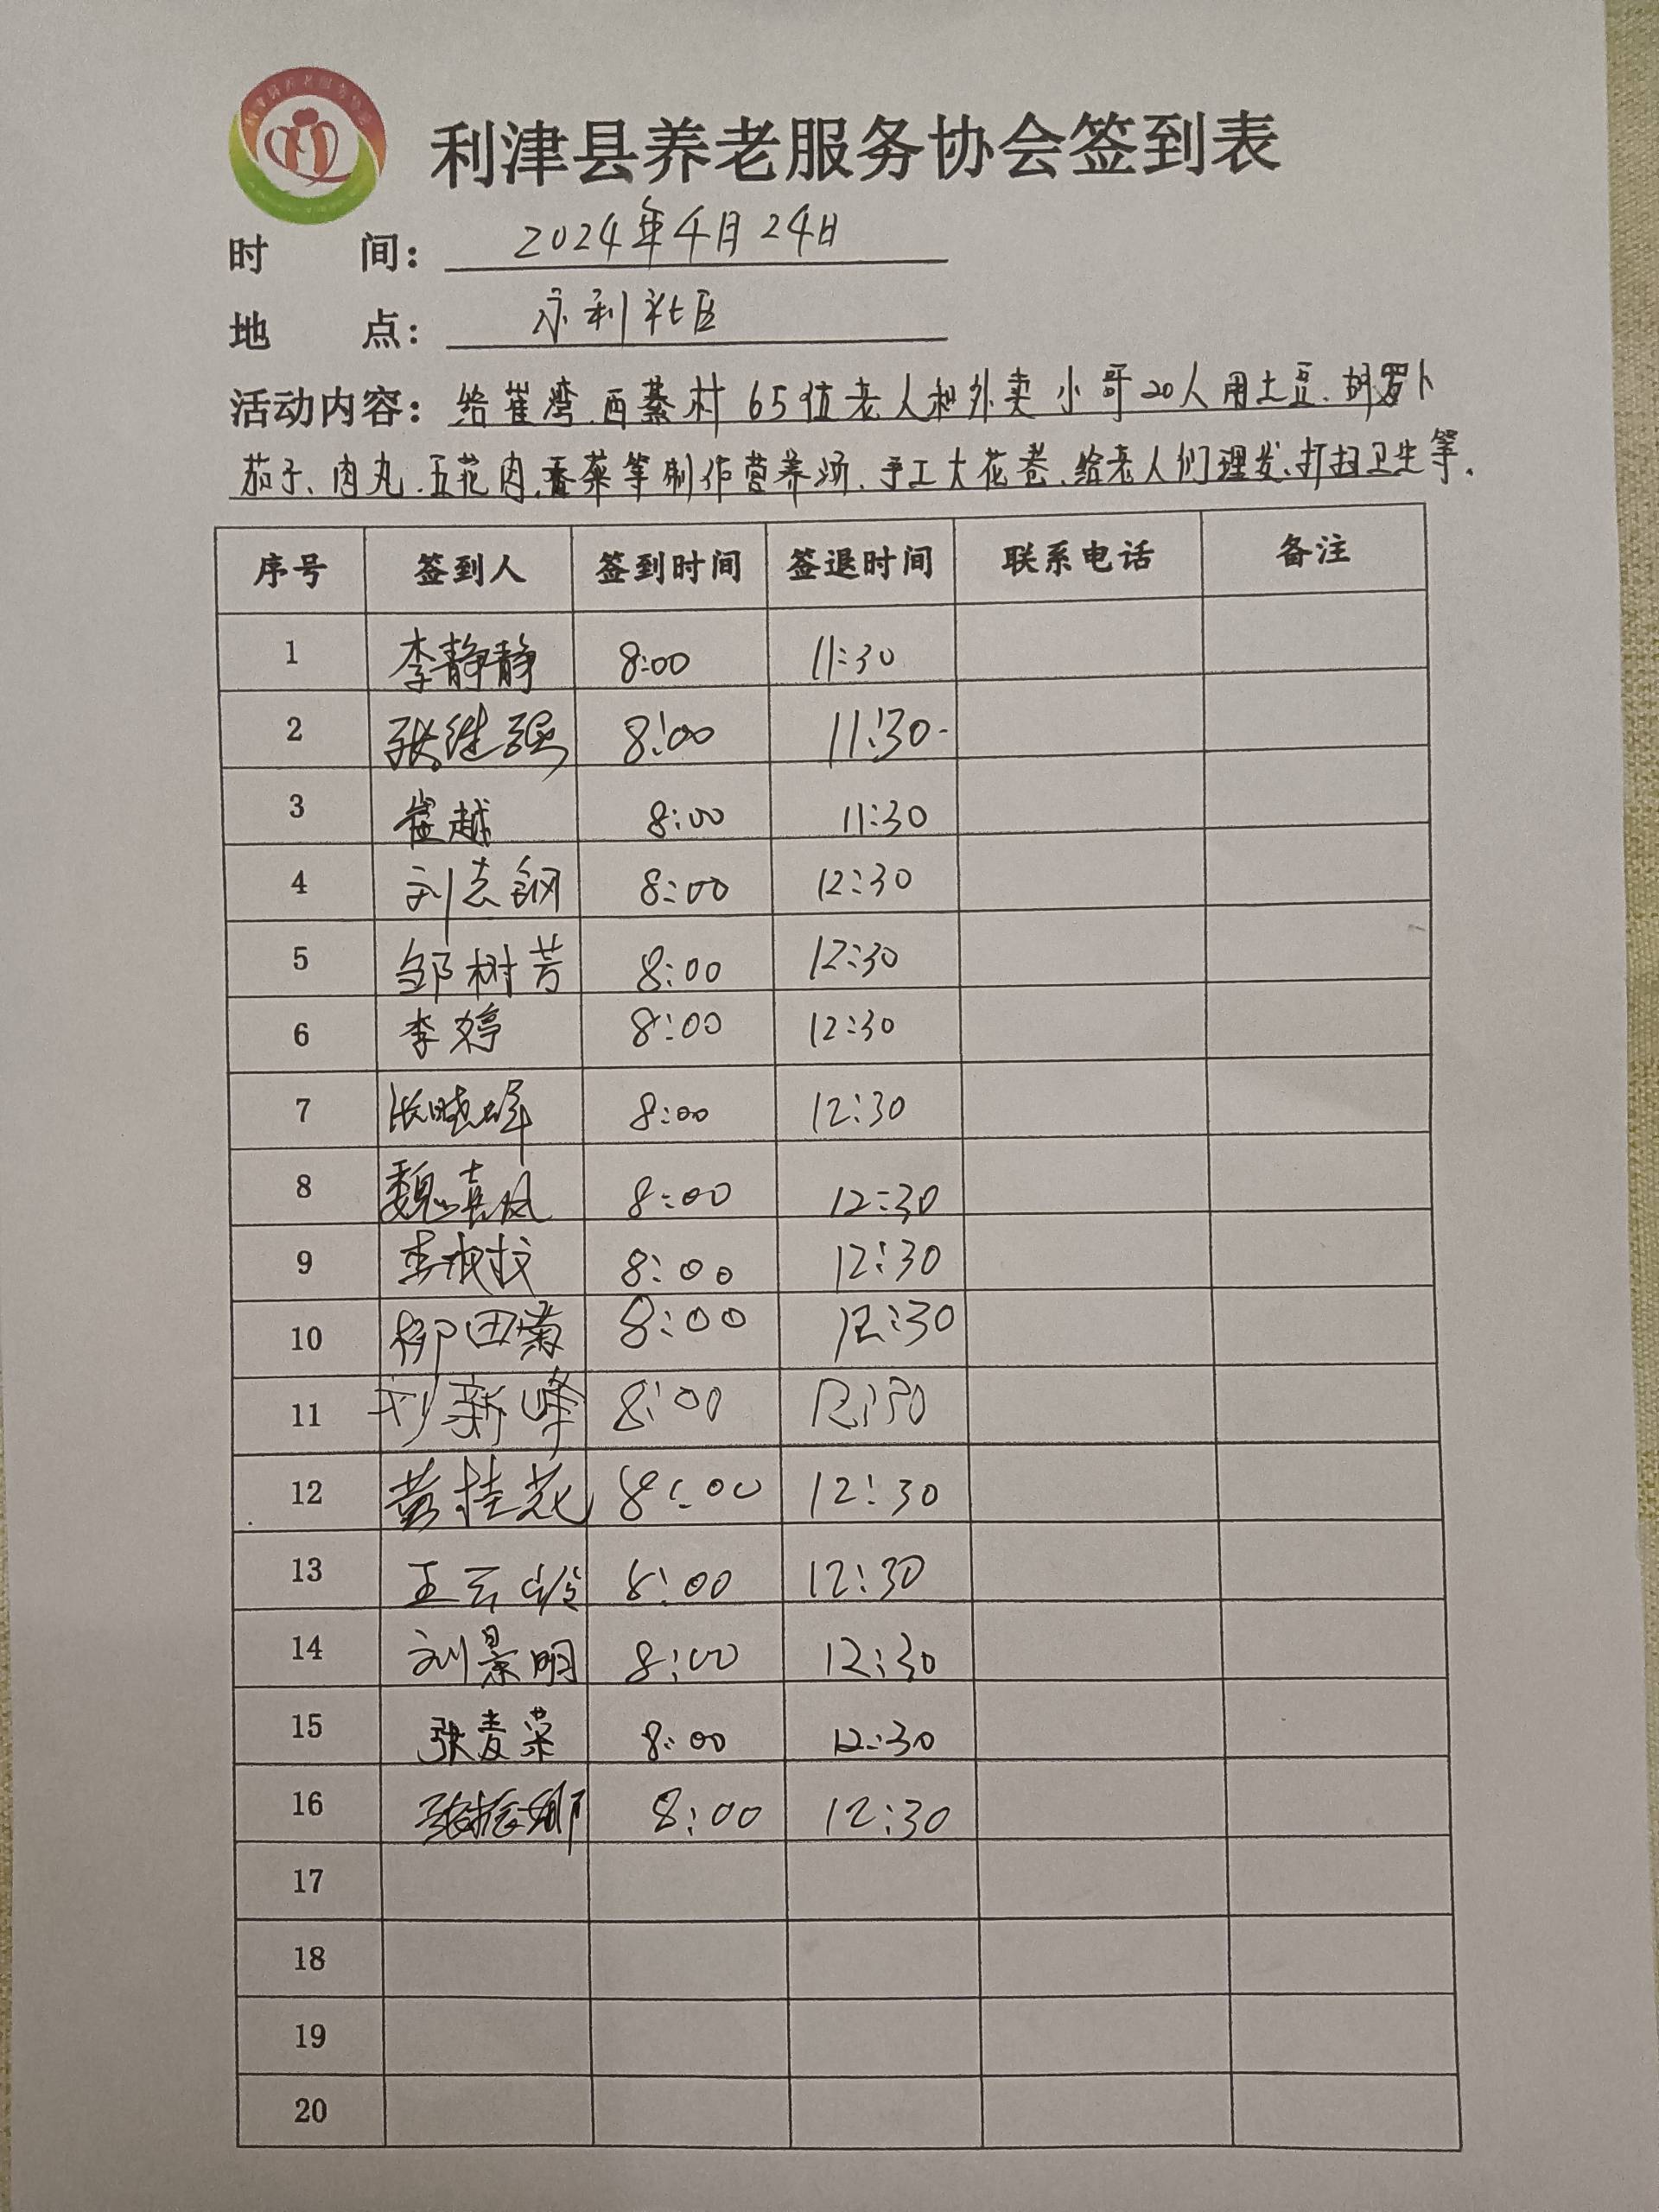 利津县养老服务协会签到表
时 间: 2024年4月24日
地 点: 永利社区
活动内容: 给崔湾、西綦村65位老人和外卖小哥20人用土豆、胡萝卜
茄子、肉丸、五花肉、香菜等制作营养汤、手工大花卷、给老人们理发、打扫卫生等.
序号 签到人 签到时间 签退时间 联系电话 备注
1 李静静 8:00 11:30
2 张继强 8:00 11:30
3 崔越 8:00 11:30
4 刘志钢 8:00 12:30
5 邹树芳 8:00 12:30
6 李婷 8:00 12:30
7 张晓峰 8:00 12:30
8 魏喜凤 8:00 12:30
9 李 8:00 12:30
10 柳田菊 8:00 12:30
11 刘新峰 8:00 12:30
12 黄桂花 8:00 12:30
13 王云 8:00 12:30
14 刘景明 8:00 12:30
15 张麦荣 8:00 12:30
16 张振娜 8:00 12:30
17
18
19
20